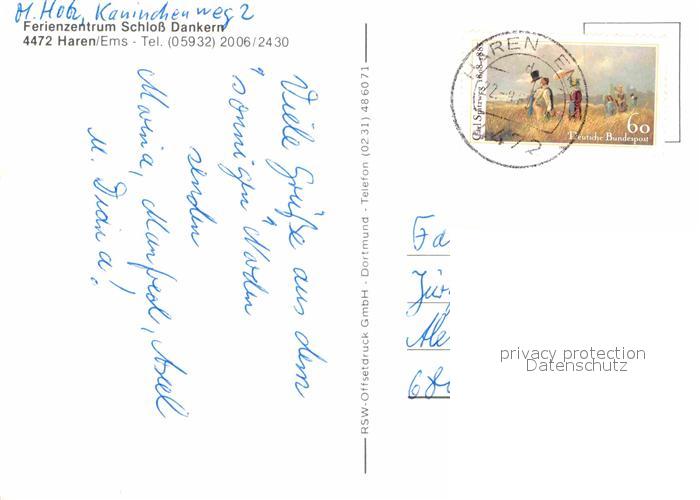 M. Hotz, Kaninchenweg 2
Ferienzentrum Schloß Dankern
4472 Haren/Ems - Tel. (05932) 2006/2430
Viele Grüße aus dem
"sonnigen" Norden
senden
Marina, Manfred, Axel
u. Diana!
RSW-Offsetdruck GmbH - Dortmund - Telefon (02 31) 48 60 71
HAREN, E
4472
Carl Spitzweg 1808-1885
60
Deutsche Bundespost
Fa
Jür
Ale
privacy protection
Datenschutz